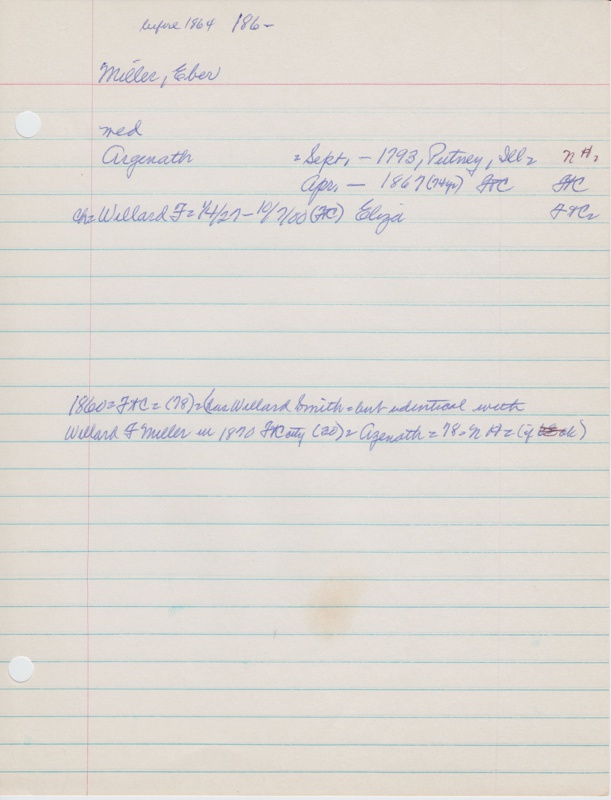 before 1864 186-
Miller, Eber
med
Argenath = Sept, - 1793, Putney, Ill= NH=
Apr, - 1867 (74yr) FtC FtC
ch= Willard F= 1/4/27 - 10/7/00 (FtC) Eliza FtC=
1860= FtC= (78)= (as Willard Smith= but identical with
Willard F Miller in 1870 FtC city (20)= Azenath= 78= NH= (if ok)